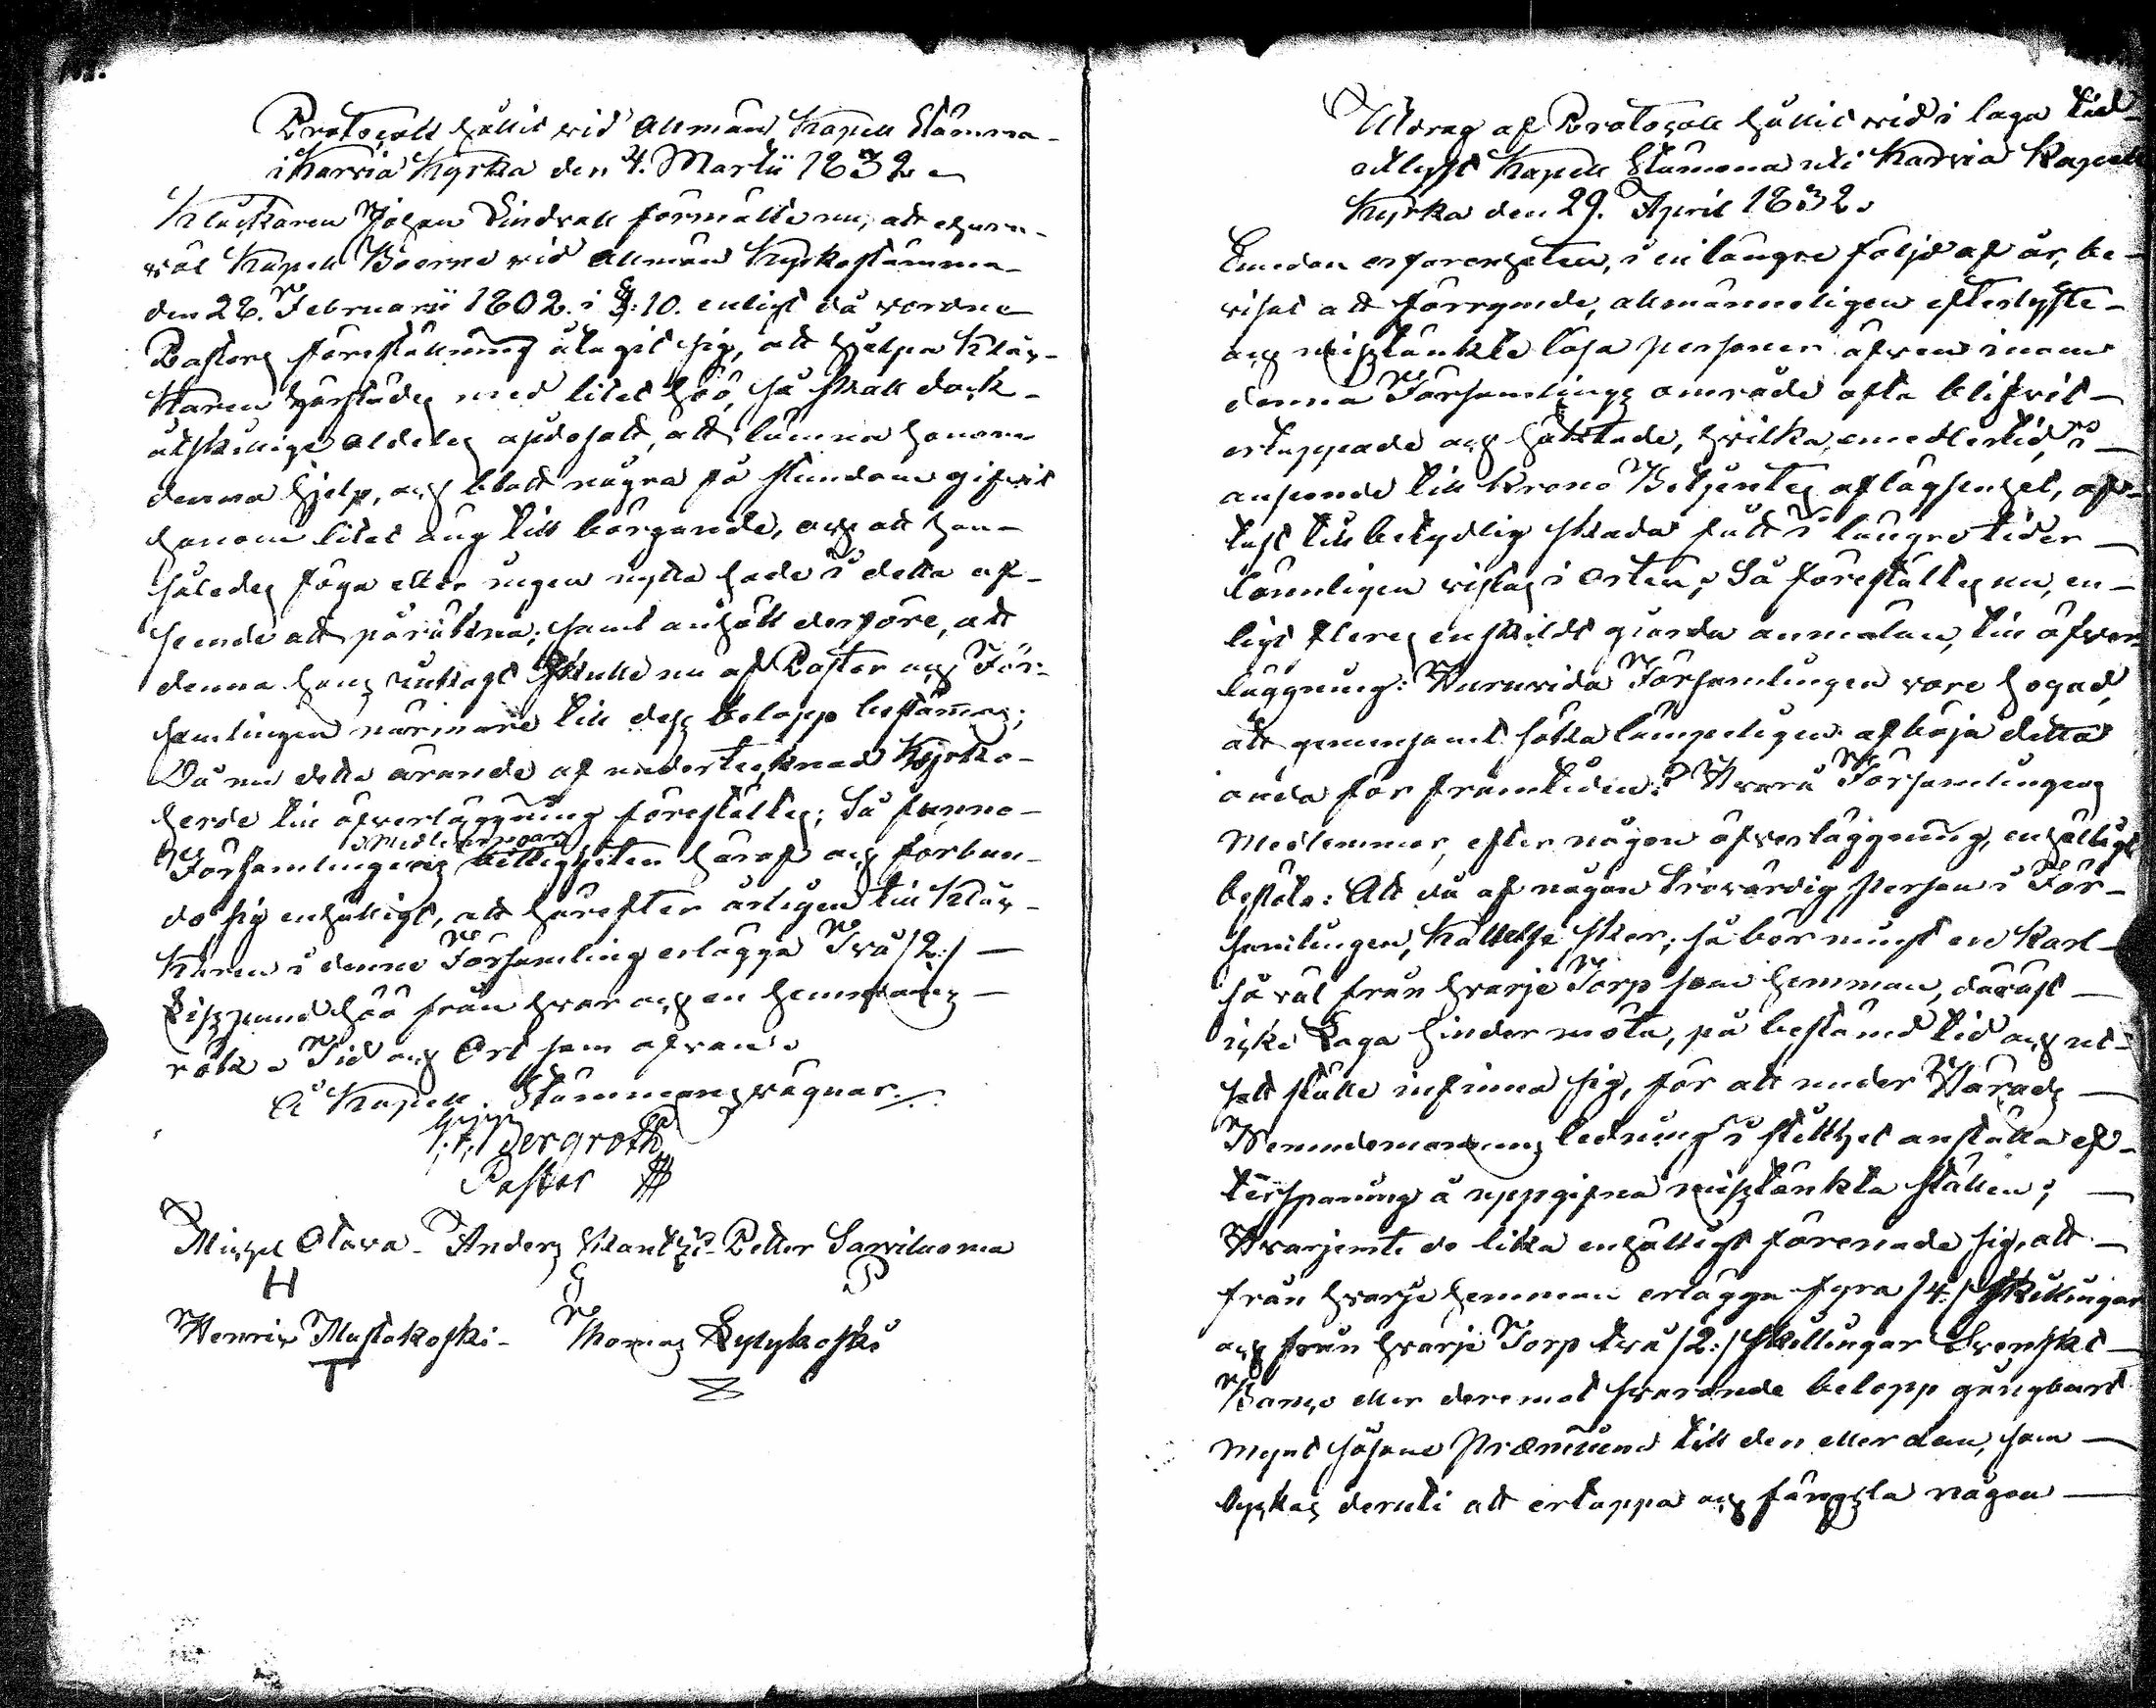 Protocoll hållit vid Allmän Kapell Stämma
i Karvia Kyrka den 4. Martii 1832.
Kluckaren Johan Lindvall förmälte nu, att ehuru-
väl Kapell Boerne vid Allmän Kyrkostämma
den 28. Februarii 1802. i §. 10. enligt då vordne
Pastors föreställning åtagit sig, att hjelpa Kluc-
karen härstädes med litet höö, så skall dock
åtskillige aldeles afslagit, att lämna honom
denna hjelp, och blott några få stundom gifvit
honom litet äng till bärgande, och att han
således föga eller ingen nytta hade i detta af-
seende att påräkna; samt anhöll derföre, att
denna hans rättighet skulle nu af Pastor och För-
samlingen närmare till dess belopp bestämmas;
Då nu detta ärande af undertecknad Kyrko-
herde till öfverläggning föreställtes; Så funno
Medlemmar
Församlingens billigheten häraf och förbun-
do sig enhälligt, att härefter årligen till Kluc-
karen i denne Församling erlägga Två /2:/
Lispund höö från hvar och en hemmans
röka. Tid och Ort som ofvan.
Å Kapell Stämmans vägnar
Bergroth
Pastor
Michel Otava - Anders Mantzi - Petter Sarviluoma
H P
Henric Mustakoski - Thomas Kylykoski
T Z
Utdrag af Protocoll hållit vid i laga tid
utlyst Kapell Stämma uti Karvia Kapell
Kyrka den 29. April 1832.
Emedan erfarenheten, i en längre följd af år, be-
visat att förrymde, allmänneligen efterlyste
och misstänkte lösa personer äfven inom
denna Församlings område ofta blifvit
ertappade och häktade, hvilka emedlertid, i
anseende till Krono Betjentes aflägsenhet, of-
tast till betydlig skada fått i längre tider
lönnligen vistas i Orten; Så föreställtes nu, en-
ligt fleres enskildt giorda anmälan, till öfver-
läggning: Huruvida Församlingen vore hogad,
att gemensamt söka lämpeligen afböja detta
onda för framtiden? Hvarå Församlingens
Medlemmar, efter någon öfverläggning, enhälligt
beslöto: Att då af någon trovärdig Person i För-
samlingen, kallelse sker; så bör minst en Karl
så väl från hvarje Torp som hemman, därest
icke Laga hinder möta, på bestämd tid och ut-
satt ställe infinna sig, för att under Härads
Nemndemannens ledning i stillhet anställa ef-
terspaning å uppgifna misstänkta ställen;
Hvarjemte de lika enhälligt förenade sig, att
från hvarje hemman erlägga fyra /4:/ Skillingar
och från hvarje Torp två /2:/ Skillingar Svenskt
Banco eller deremot svarande belopp gångbart
Mynt såsom Præmium till den eller dem, som
lyckas deruti att ertappa och fängsla någon